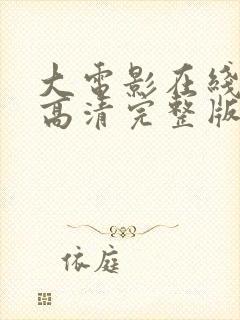 大电影在线
高清完整版
依庭